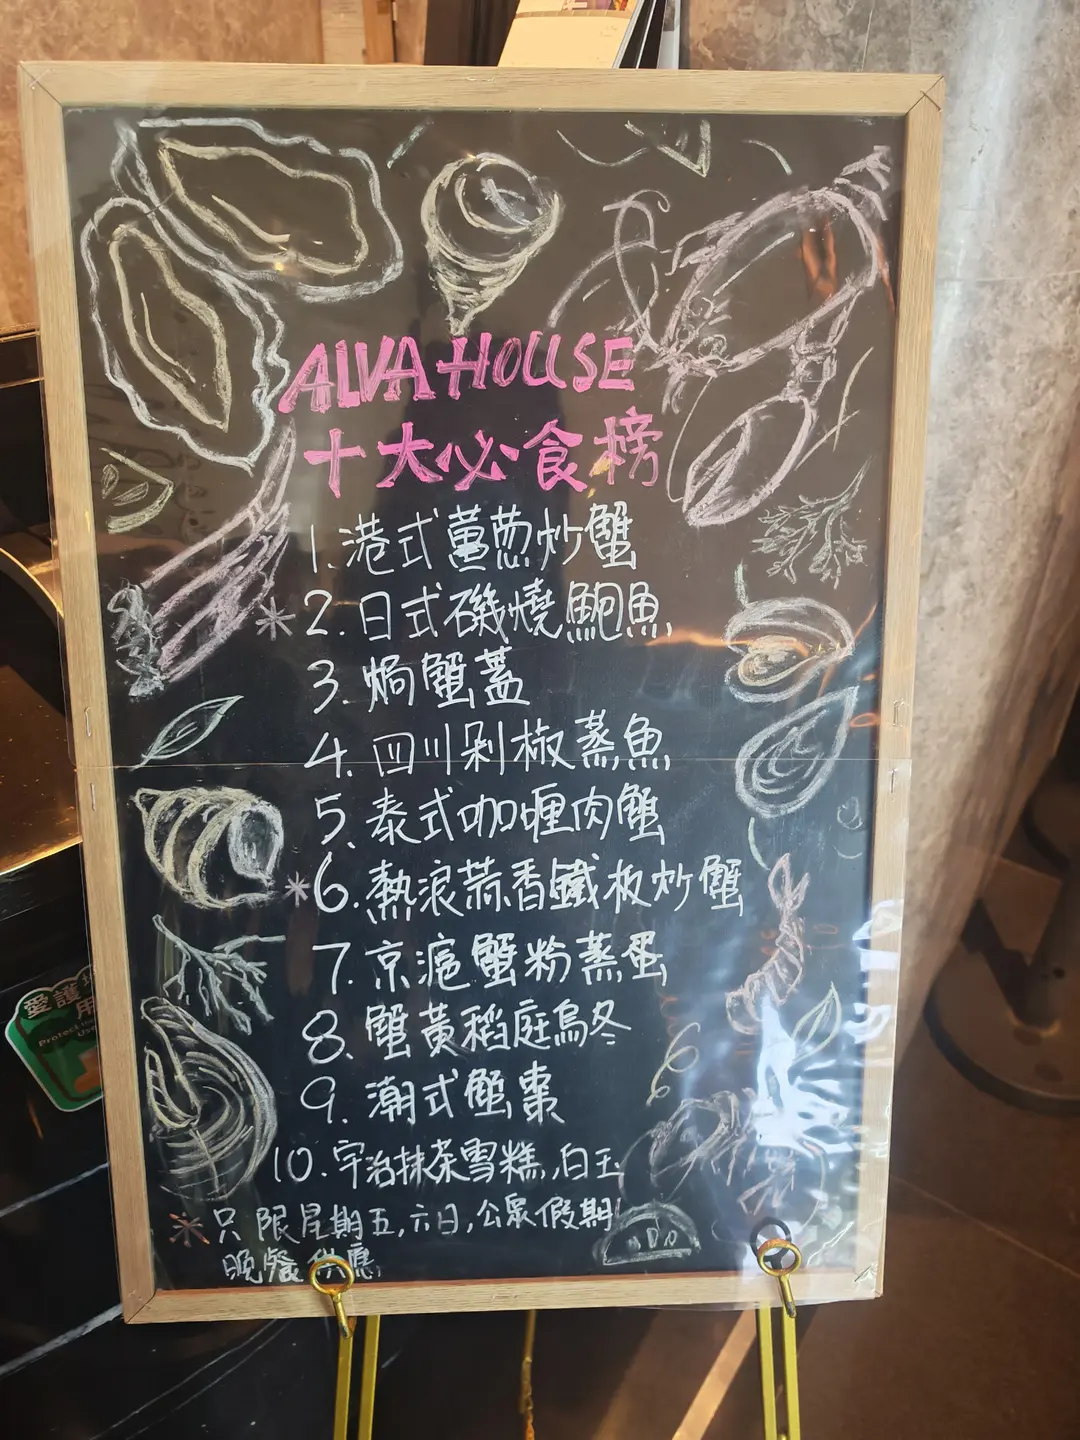 ALVA HOUSE
十大必食榜
1. 港式薑葱炒蟹
*2. 日式磯燒鮑魚
3. 焗蟹蓋
4. 四川剁椒蒸魚
5. 泰式咖喱肉蟹
*6. 熱浪蒜香鐵板炒蟹
7. 京滬蟹粉蒸蛋
8. 蟹黃稻庭烏冬
9. 潮式蟹棗
10. 宇治抹茶雪糕,白玉
*只限星期五,六日,公眾假期
晚餐供應
愛護
用
Protect